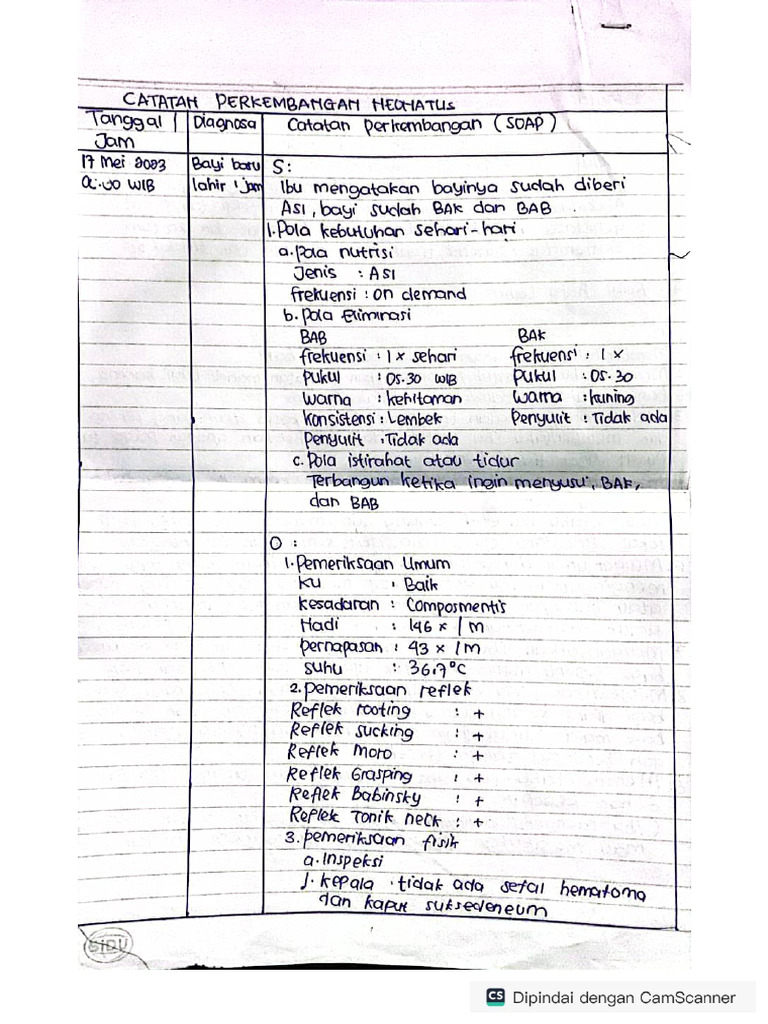 CATATAN PERKEMBANGAN NEONATUS
Tanggal / Diagnosa Catatan Perkembangan (SOAP)
Jam
17 Mei 2023 Bayi baru S:
WIB lahir 1 jam Ibu mengatakan bayinya sudah diberi
ASI, bayi sudah BAK dan BAB
1. Pola kebutuhan sehari-hari
a. pola nutrisi
Jenis : ASI
frekuensi : on demand
b. pola Eliminasi
BAB BAK
frekuensi : 1 x sehari frekuensi : 1 x
Pukul : 05.30 WIB Pukul : 05.30
Warna : kehitaman Warna : kuning
Konsistensi : Lembek Penyulit : Tidak ada
Penyulit : Tidak ada
c. Pola istirahat atau tidur
Terbangun ketika ingin menyusu, BAK,
dan BAB
O :
1. Pemeriksaan Umum
KU : Baik
Kesadaran : Composmentis
Nadi : 146 x / m
pernapasan : 43 x / m
suhu : 36.7°C
2. pemeriksaan reflek
Reflek rooting : +
Reflek sucking : +
Reflek Moro : +
Reflek Grasping : +
Reflek Babinsky : +
Reflek Tonik neck : +
3. pemeriksaan fisik
a. Inspeksi
1. Kepala : tidak ada sefal hematoma
dan kaput suksedeneum
SIDU
CS Dipindai dengan CamScanner